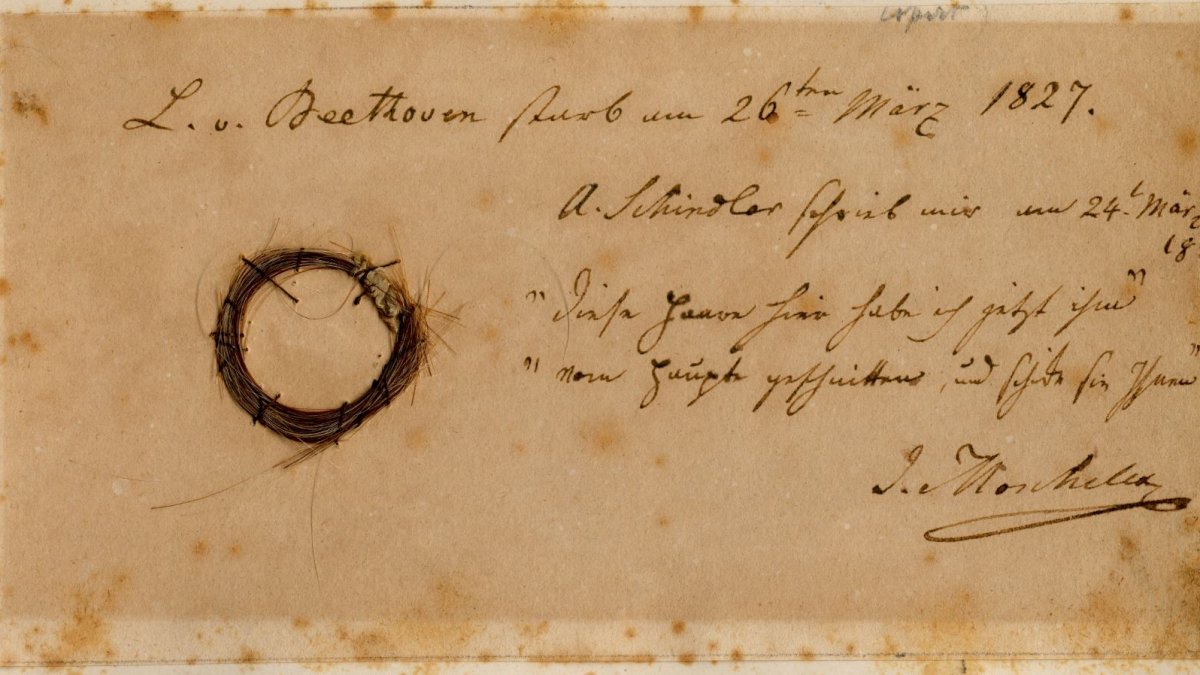 L. v. Beethoven starb am 26ten März 1827.
A. Schindler schrieb mir am 24t März
18
"Diese Haare hier habe ich jetzt ihm"
"vom Haupte geschnitten, und schicke sie Ihnen"
I. Moscheles